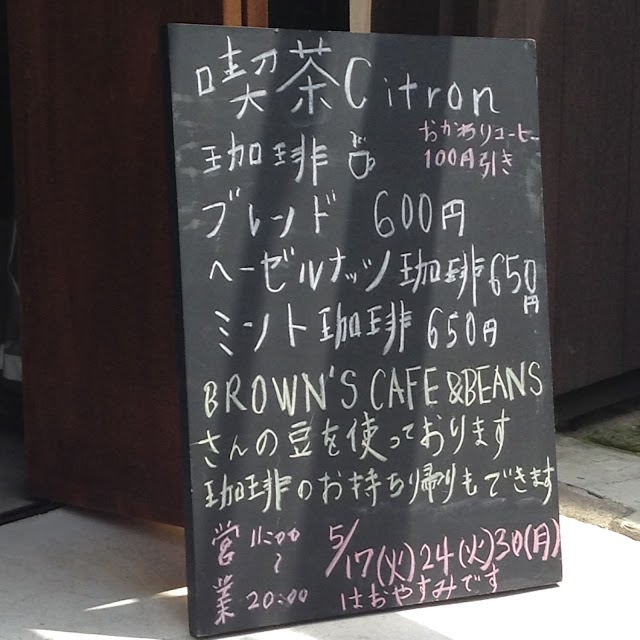 喫茶Citron
珈琲
おかわりコーヒー
100円引き
ブレンド 600円
ヘーゼルナッツ珈琲650円
ミント珈琲 650円
BROWN'S CAFE &BEANS
さんの豆を使っております
珈琲のお持ち帰りもできます
営業 11:00〜20:00
5/17(火)24(火)30(月)
はおやすみです